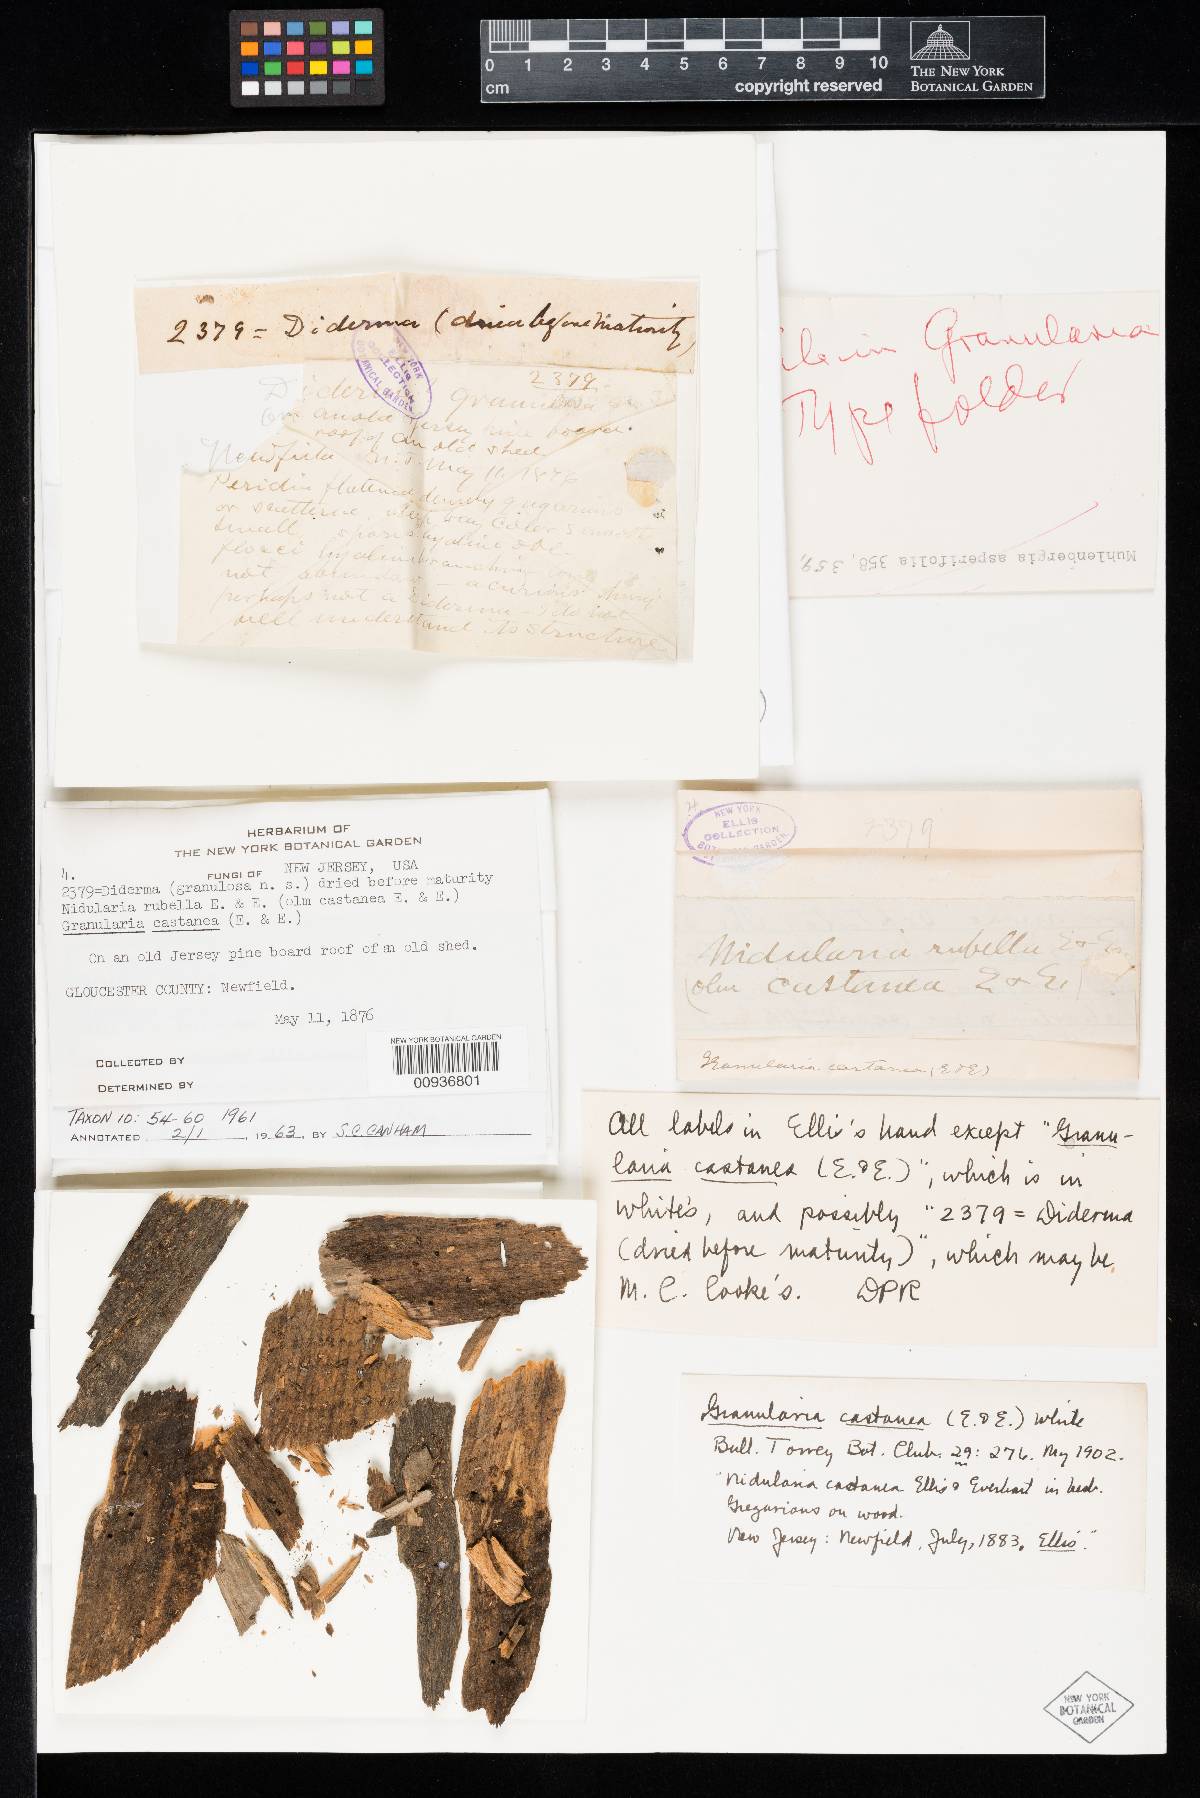 0 1 2 3 4 5 6 7 8 9 10
cm
copyright reserved
THE NEW YORK
BOTANICAL GARDEN
2379 = Diderma (dried before maturity)
NEW YORK
ELLIS
COLLECTION
BOTANICAL GARDEN
2379.
Diderma granulosa
On an old Jersey pine board.
roof of an old shed
Newfield N.J. May 11, 1876
Peridia flattened densely gregarious
or scattering,
small, spores hyaline
flocci hyaline branching
not abundant - a curious thing
perhaps not a Diderma - I do not
well understand its structure
file in Granularia
Type folder
Muhlenbergia asperifolia 358, 359,
HERBARIUM OF
THE NEW YORK BOTANICAL GARDEN
FUNGI OF NEW JERSEY, USA
4.
2379=Diderma (granulosa n. s.) dried before maturity
Nidularia rubella E. & E. (olm castanea E. & E.)
Granularia castanea (E. & E.)
On an old Jersey pine board roof of an old shed.
GLOUCESTER COUNTY: Newfield.
May 11, 1876
COLLECTED BY
DETERMINED BY
NEW YORK BOTANICAL GARDEN
00936801
TAXON 10: 54-60 1961
ANNOTATED 2/1, 1963, BY S.C. CANHAM
4.
NEW YORK
ELLIS
COLLECTION
BOTANICAL GARDEN
2379
Nidularia rubella E & E
(olm castanea E & E)
Granularia castanea (E & E)
All labels in Ellis's hand except "Granu-
laria castanea (E. & E.)", which is in
White's, and possibly "2379 = Diderma
(dried before maturity)", which may be
M. C. Cooke's. DPR
Granularia castanea (E. & E.) White
Bull. Torrey Bot. Club. 29: 276. My 1902.
"Nidularia castanea Ellis & Everhart in herb.
Gregarious on wood.
New Jersey: Newfield, July, 1883, Ellis."
NEW YORK
BOTANICAL
GARDEN